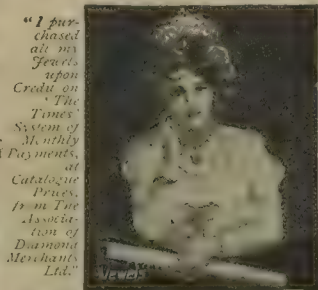 "I pur-
chased
all my
Jewels
upon
Credit on
'The
Times'
System of
Monthly
Payments,
at
Catalogue
Prices,
from The
Associa-
tion of
Diamond
Merchants
Ltd."